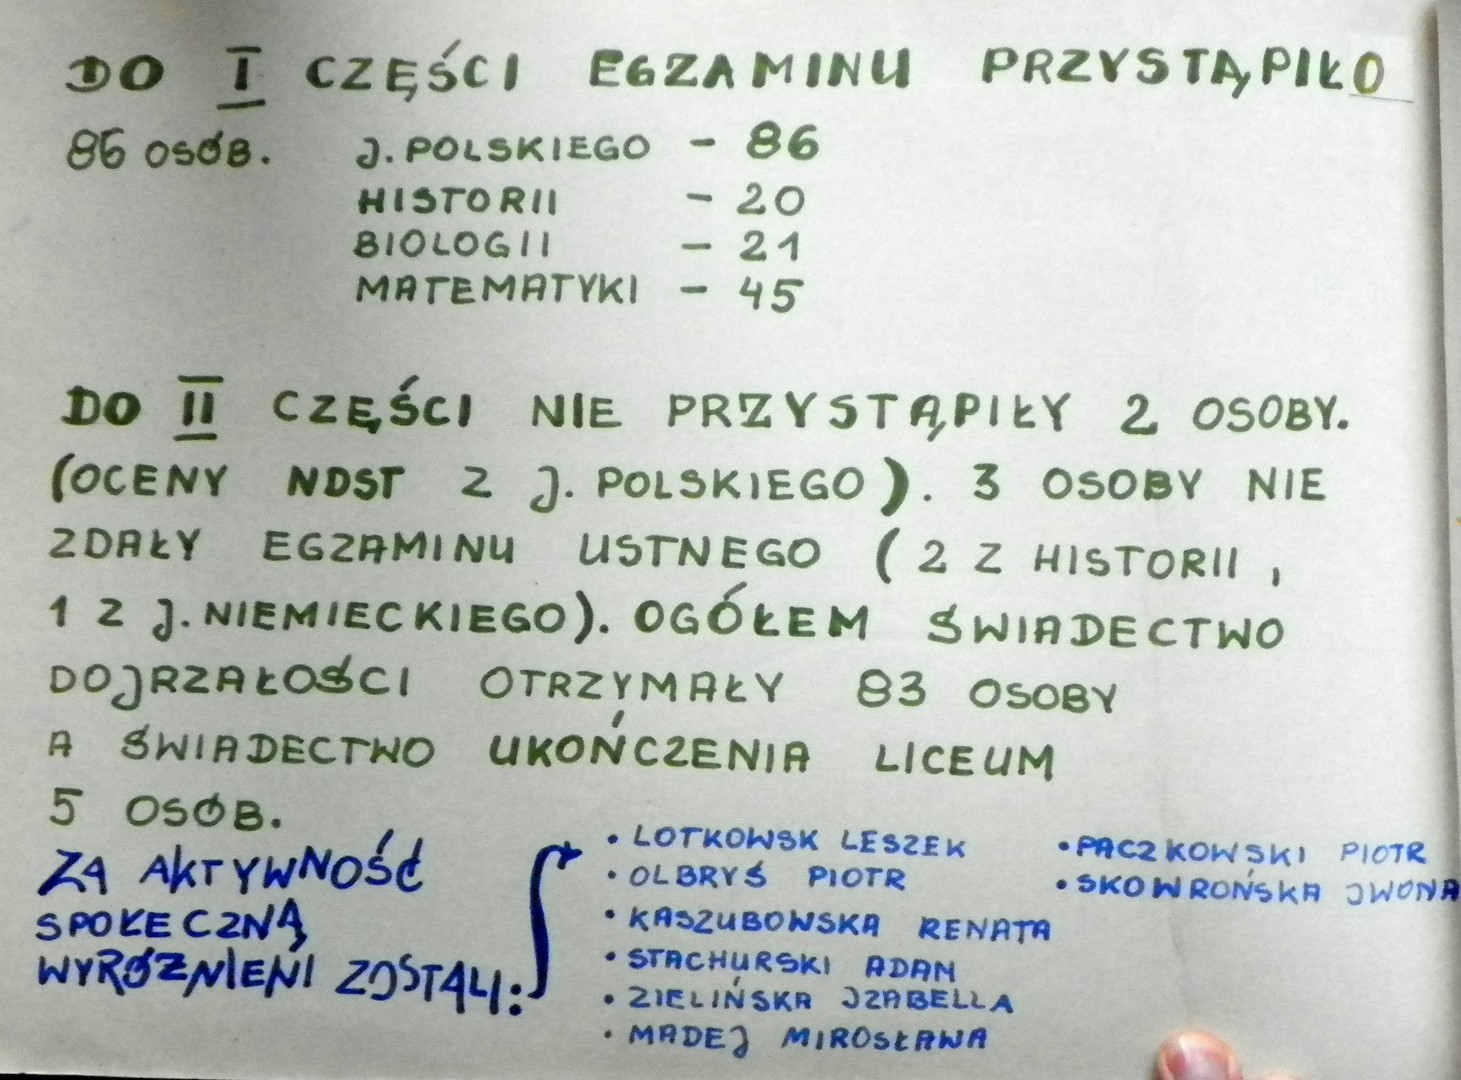 DO I CZĘŚCI EGZAMINU PRZYSTĄPIŁO
86 OSÓB. J. POLSKIEGO - 86
HISTORII - 20
BIOLOGII - 21
MATEMATYKI - 45
DO II CZĘŚCI NIE PRZYSTĄPIŁY 2 OSOBY.
(OCENY NDST Z J. POLSKIEGO). 3 OSOBY NIE
ZDAŁY EGZAMINU USTNEGO (2 Z HISTORII,
1 Z J. NIEMIECKIEGO). OGÓŁEM ŚWIADECTWO
DOJRZAŁOŚCI OTRZYMAŁY 83 OSOBY
A ŚWIADECTWO UKOŃCZENIA LICEUM
5 OSÓB.
ZA AKTYWNOŚĆ
SPOŁECZNĄ
WYRÓŻNIENI ZOSTALI:
• LOTKOWSK LESZEK
• OLBRYŚ PIOTR
• KASZUBOWSKA RENATA
• STACHURSKI ADAM
• ZIELIŃSKA IZABELLA
• MADEJ MIROSŁAWA
• PACZKOWSKI PIOTR
• SKOWROŃSKA IWONA